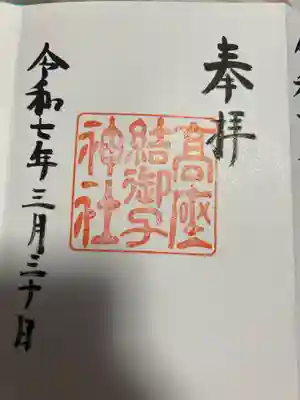 奉拝
高座
結御子
神社
令和七年三月三十日